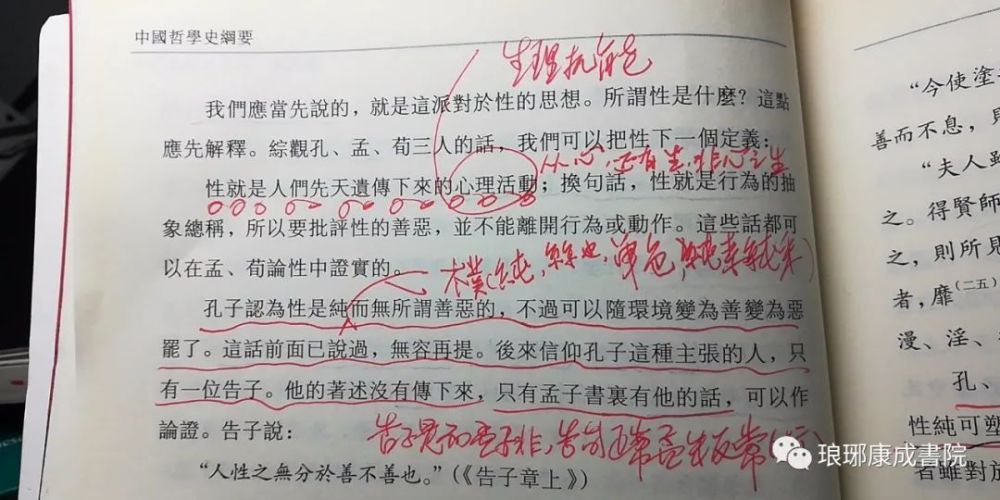 中國哲學史綱要
生理机能
我們應當先說的，就是這派對於性的思想。所謂性是什麼？這點
應先解釋。綜觀孔、孟、荀三人的話，我們可以把性下一個定義：
从心，还有生，非心之生
性就是人們先天遺傳下來的心理活動；換句話，性就是行為的抽
象總稱，所以要批評性的善惡，並不能離開行為或動作。這些話都可
以在孟、荀論性中證實的。
木樸（純，絲也，單色
孔子認為性是純而無所謂善惡的，不過可以隨環境變為善變為惡
罷了。這話前面已說過，無容再提。後來信仰孔子這種主張的人，只
有一位告子。他的著述沒有傳下來，只有孟子書裏有他的話，可以作
論證。告子說：
告子是而孟子非，告
“人性之無分於善不善也。”（《告子章上》）
“今使塗
善而不息，
“夫人
之。得賢師
之，則所見
者，靡（二五）
漫、淫、
孔、
性純可塑
者雖對於
琅琊康成書院